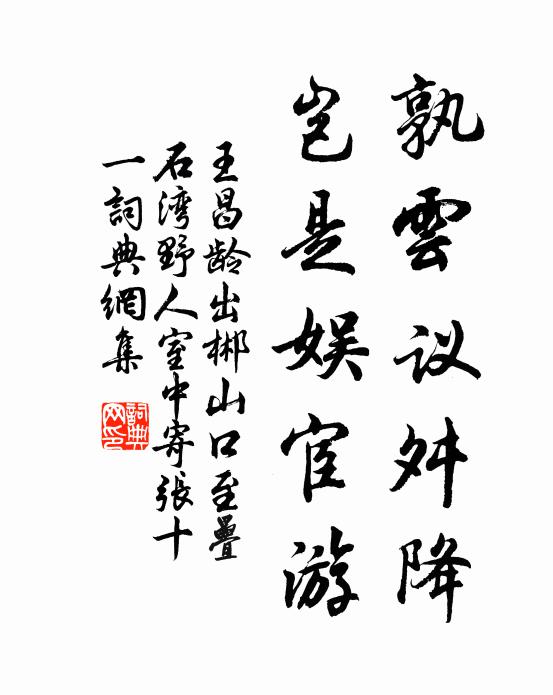 孰雲议舛降
岂是娱宦游
王昌龄出郴山口至疊
石湾野人室中寄張十
一詞典網集
詞典网印